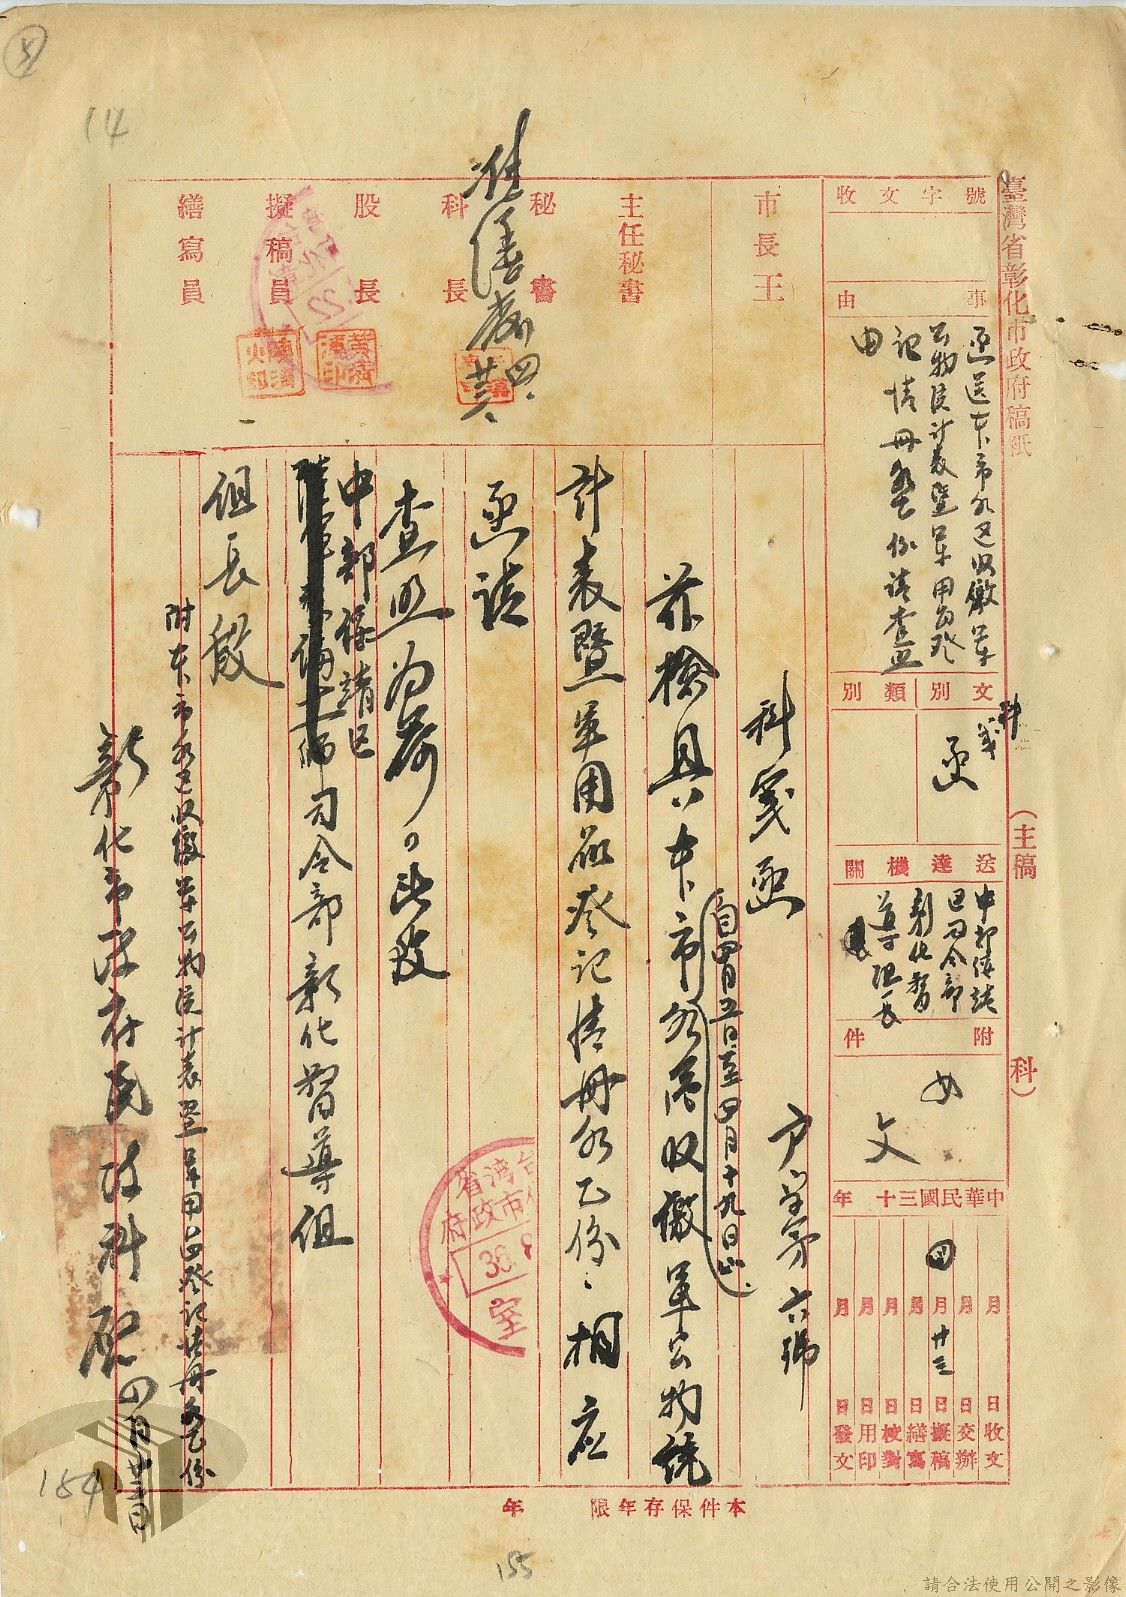 臺灣省彰化市政府稿紙
（主稿 科）
收文字號
事由
函送本市各區收繳軍
公物統計表暨軍用品登
記情冊各乙份請查照
由
文別
類別
科箋
函
送達機關
中部綏靖
區司令部
彰化督
導組長
附件
如
文
中華民國三十 年
月 日收文
月 日交辦
四月廿三日擬稿
月 日繕寫
月 日校對
月 日用印
月 日發文
市長王
主任秘書
秘書
科長
股長
擬稿員
繕寫員
四.廿三
科箋函
戶字第六號
茲檢具本市各區收繳軍公物統
自四月五日至四月十九日止
計表暨軍用品登記情冊各乙份，相應
函請
查照為荷。此致
中部綏靖區
司令部彰化督導組
組長殷
附本市各區收繳軍公物統計表暨軍用品登記情冊各乙份
彰化市政府民政科啟四月廿三日
本件保存年限 年
14
154
155
請合法使用公開之影像